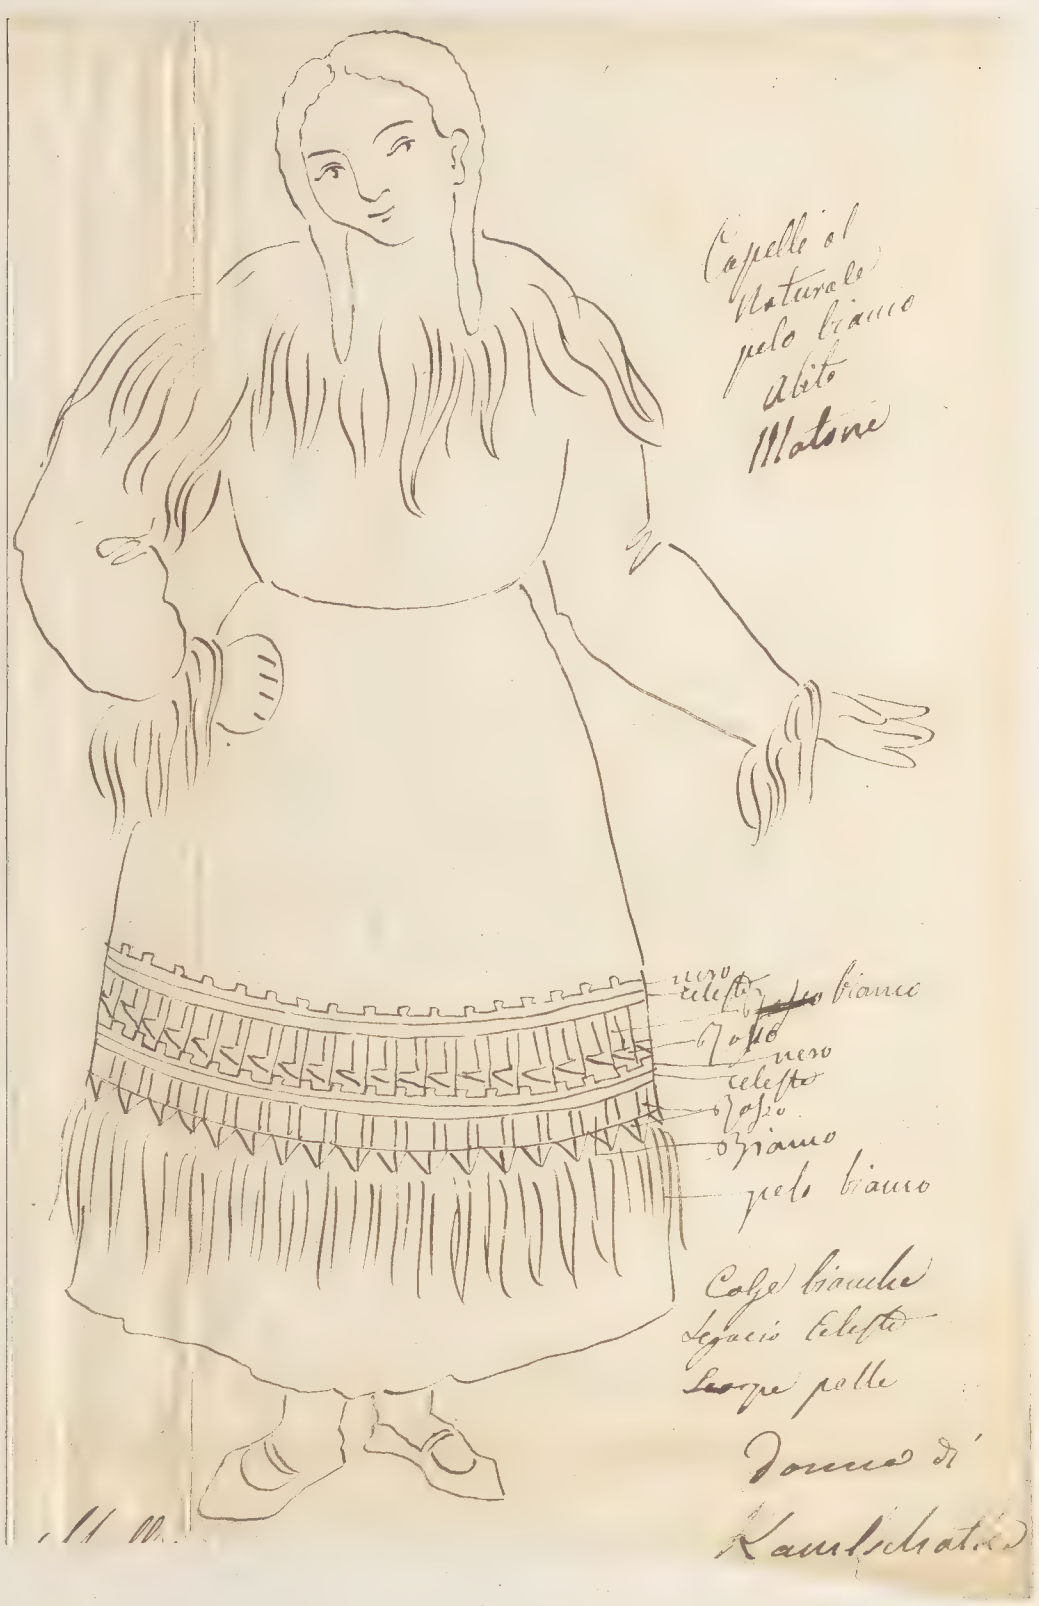 Capelli al
Naturale
pelo bianco
Abito
Matone
nero
celeste
bianco
Rosso
nero
celeste
Rosso
Bianco
pelo bianco
Calze bianche
Legacio Celeste
Scarpe pelle
Donna di
Kamtschatka